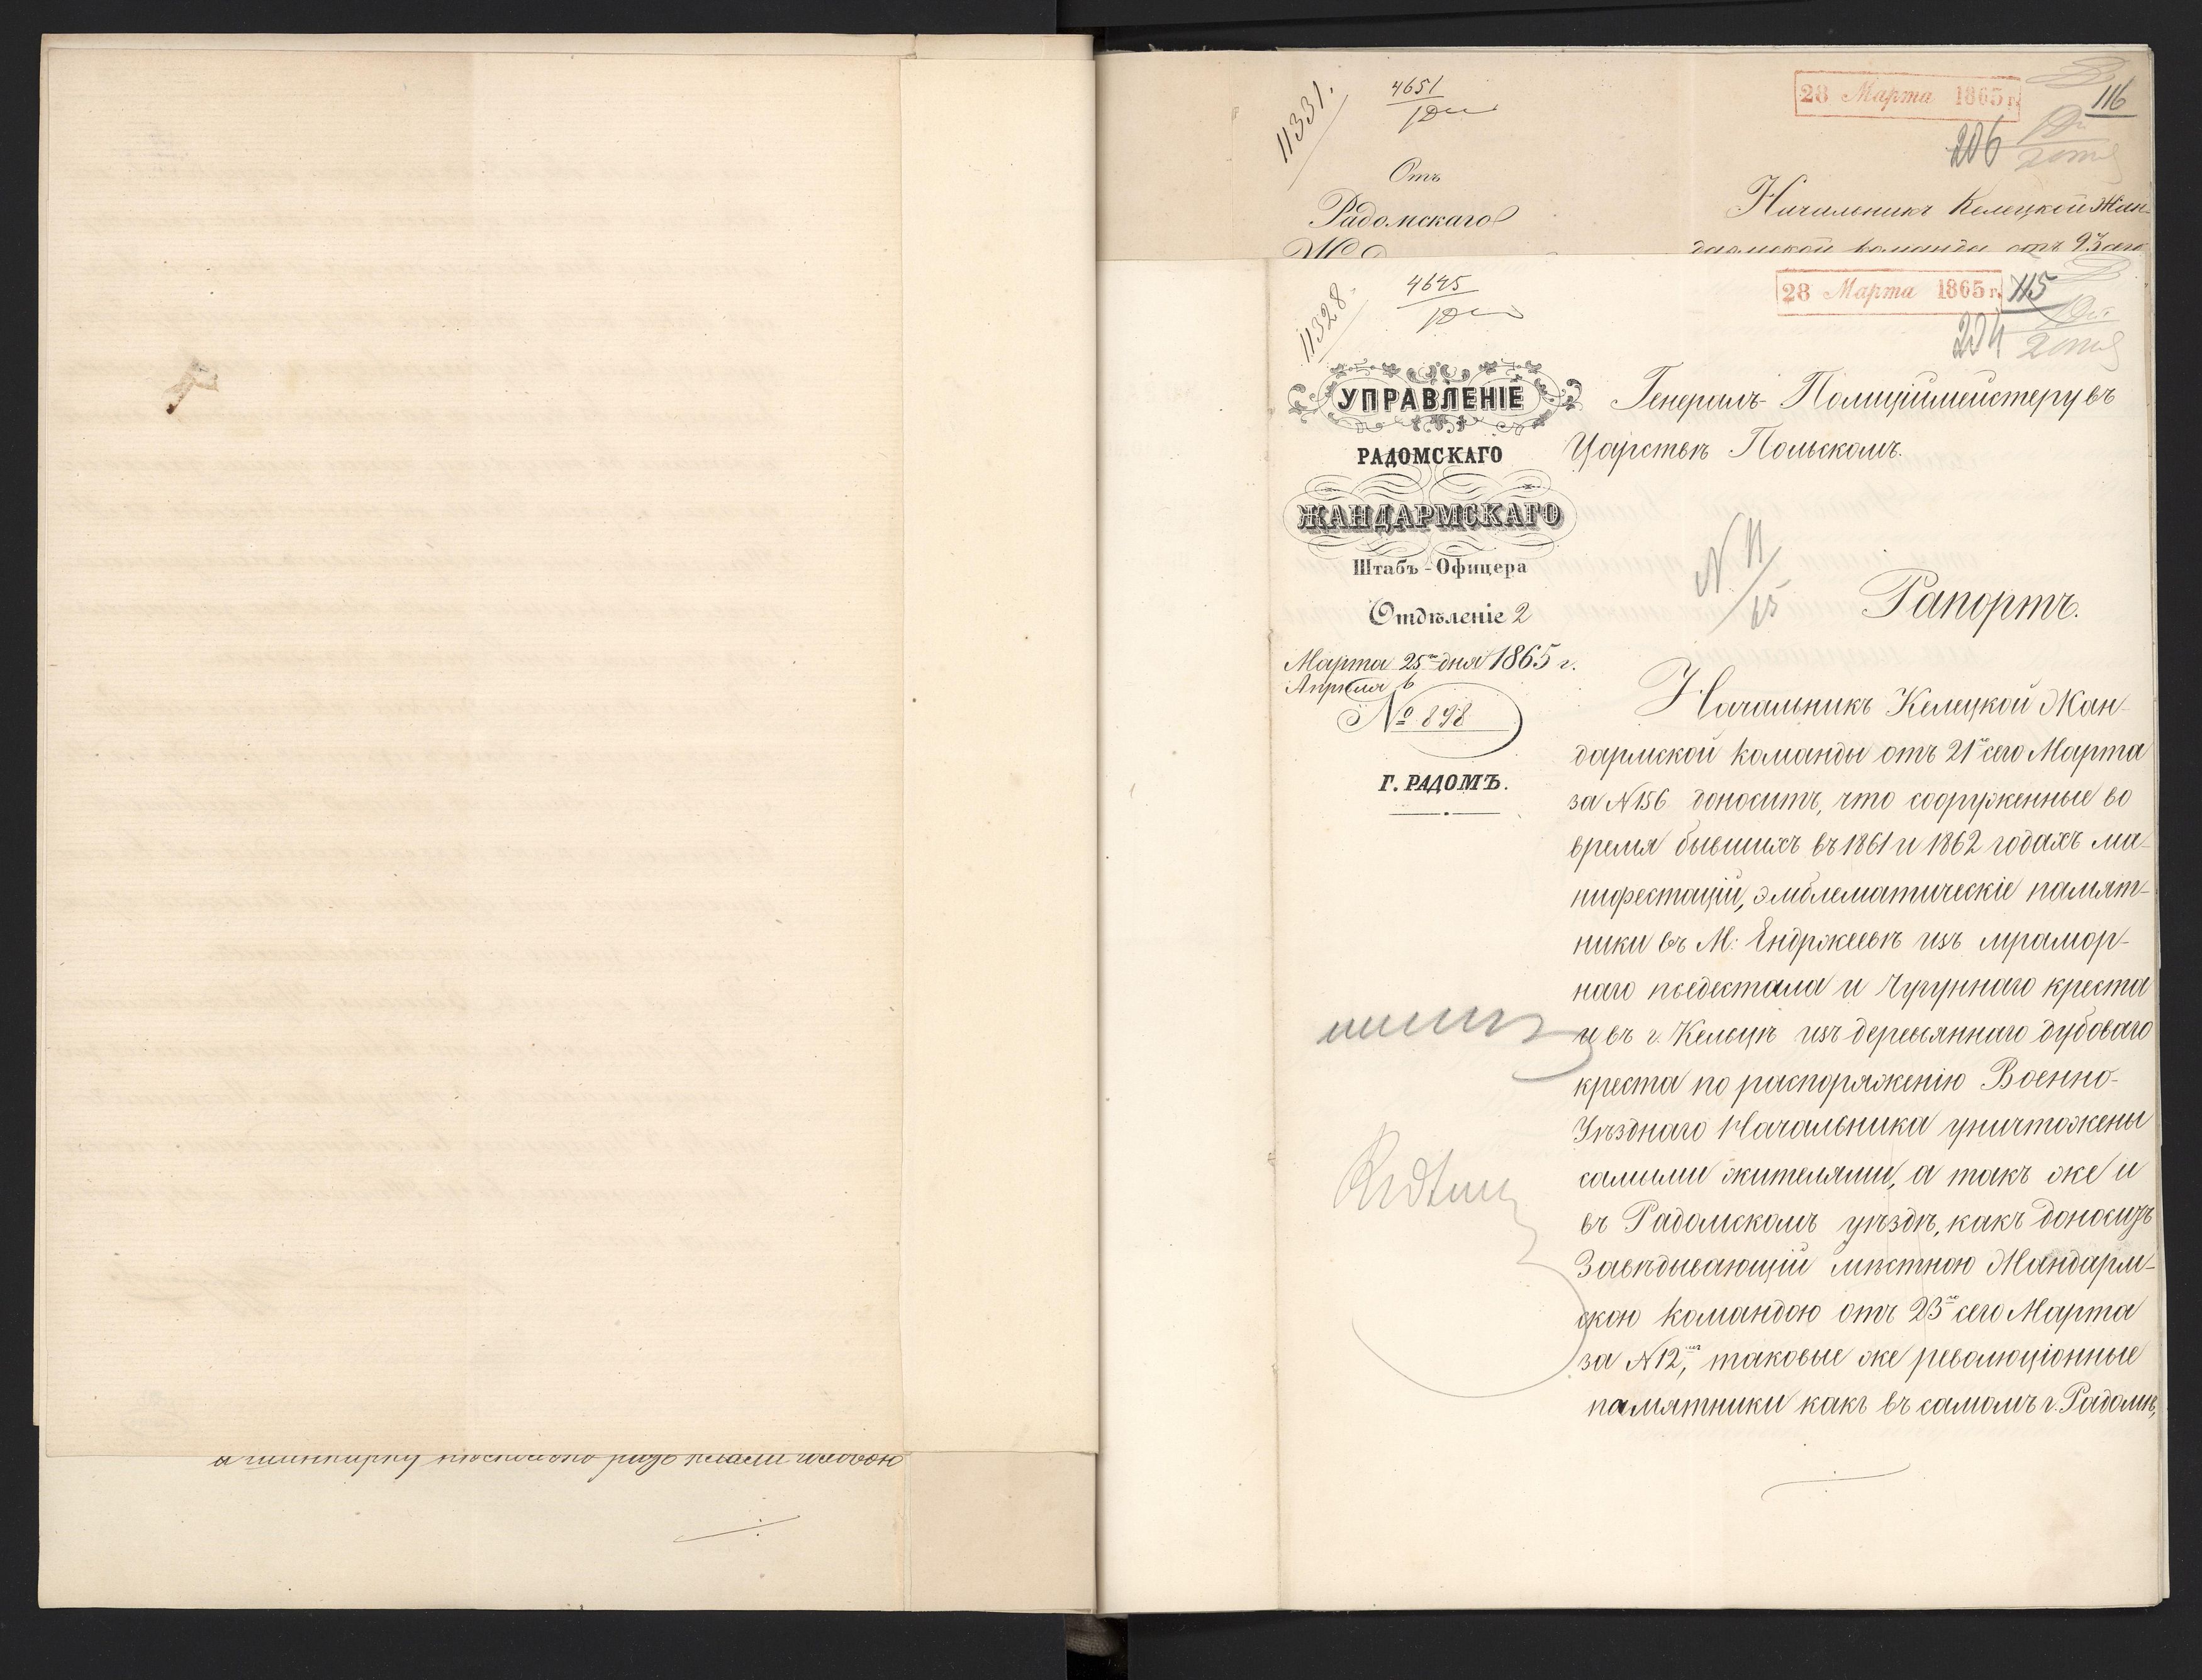 а шинкарку нѣсколько разъ
11331.
4651
Отъ
Радомскаго
28 Марта 1865 г.
116
206
Начальникъ Келецкой Жан-
дармской команды отъ 23аго
11328.
4645
28 Марта 1865 г.
115
204
УПРАВЛЕНІЕ
РАДОМСКАГО
ЖАНДАРМСКАГО
Штабъ-Офицера
Отдѣленіе 2
Марта 25го дня 1865 г.
Апрѣля 6
№ 898
Г. РАДОМЪ.
Генералъ-Полиціймейстеру въ
Царствѣ Польскомъ.
N 11/65
Рапортъ.
Начальникъ Келецкой Жан-
дармской команды отъ 21го сего Марта
за N 156 доноситъ, что сооруженные во
время бывшихъ въ 1861 и 1862 годахъ ма-
нифестацій, эмблематическіе памят-
ники въ М: Енджеевѣ изъ мрамор-
наго пьедестала и чугуннаго креста
и въ г. Кельцѣ изъ деревяннаго дубоваго
креста по распоряженію Военно-
Уѣзднаго Начальника уничтожены
самими жителями, а такъ же и
въ Радомскомъ уѣздѣ, какъ доноситъ
Завѣдывающій мѣстною Жандарм-
скою командою отъ 23го сего Марта
за N 12, таковые же революціонные
памятники какъ въ самомъ г. Радомѣ,